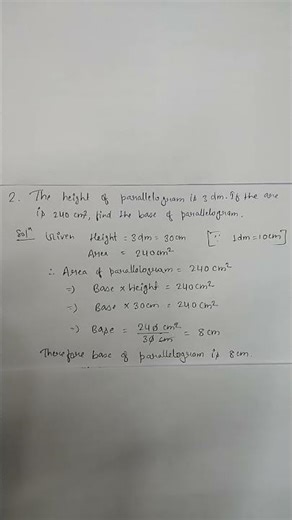 2. The height of parallelogram is 3 dm. If the are
is 240 cm², find the base of parallelogram.
Solⁿ Given Height = 3 dm = 30 cm [∵ 1dm = 10cm]
Area = 240 cm²
∴ Area of parallelogram = 240 cm²
⇒ Base × Height = 240 cm²
⇒ Base × 30 cm = 240 cm²
⇒ Base = 240 cm² / 30 cm = 8 cm
Therefore base of parallelogram is 8 cm.